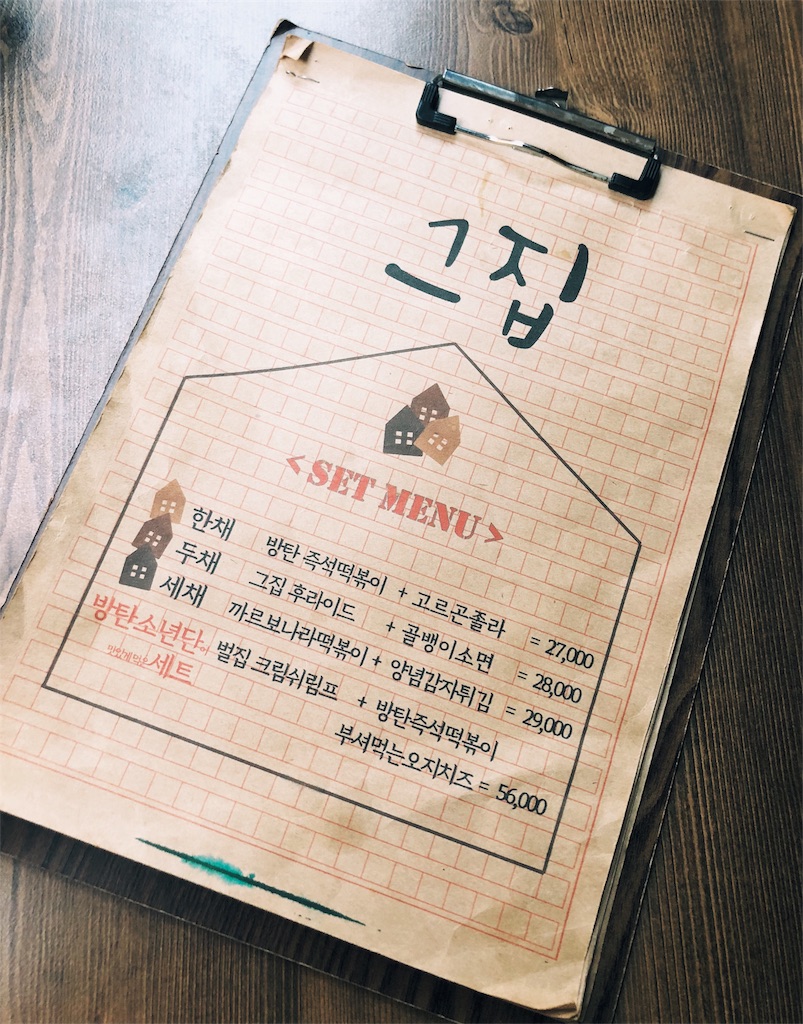 그집
< SET MENU >
한채 방탄 즉석떡볶이 + 고르곤졸라 = 27,000
두채 그집 후라이드 + 골뱅이소면 = 28,000
세채 까르보나라떡볶이 + 양념감자튀김 = 29,000
방탄소년단이 벌집 크림쉬림프 + 방탄즉석떡볶이
맛있게 먹은 세트 부셔먹는오지치즈 = 56,000